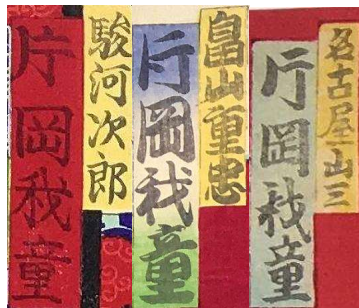 名古屋山三
片岡我童
畠山重忠
片岡我童
駿河次郎
片岡我童